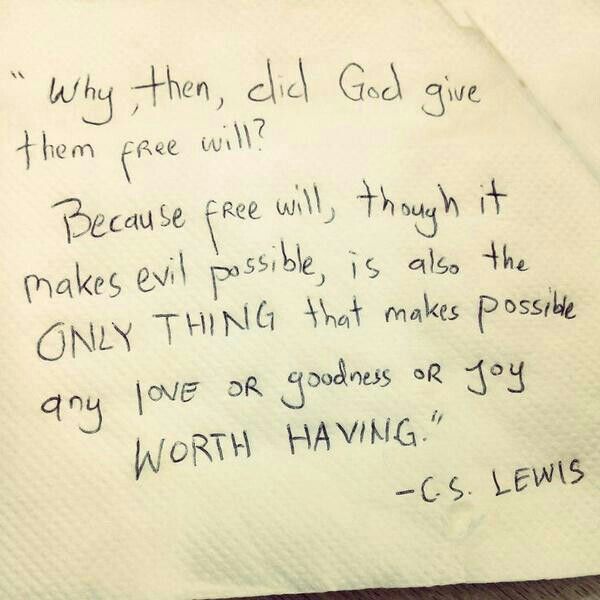 "Why, then, did God give
them free will?
Because free will, though it
makes evil possible, is also the
ONLY THING that makes possible
any love or goodness or joy
WORTH HAVING."
-C.S. LEWIS